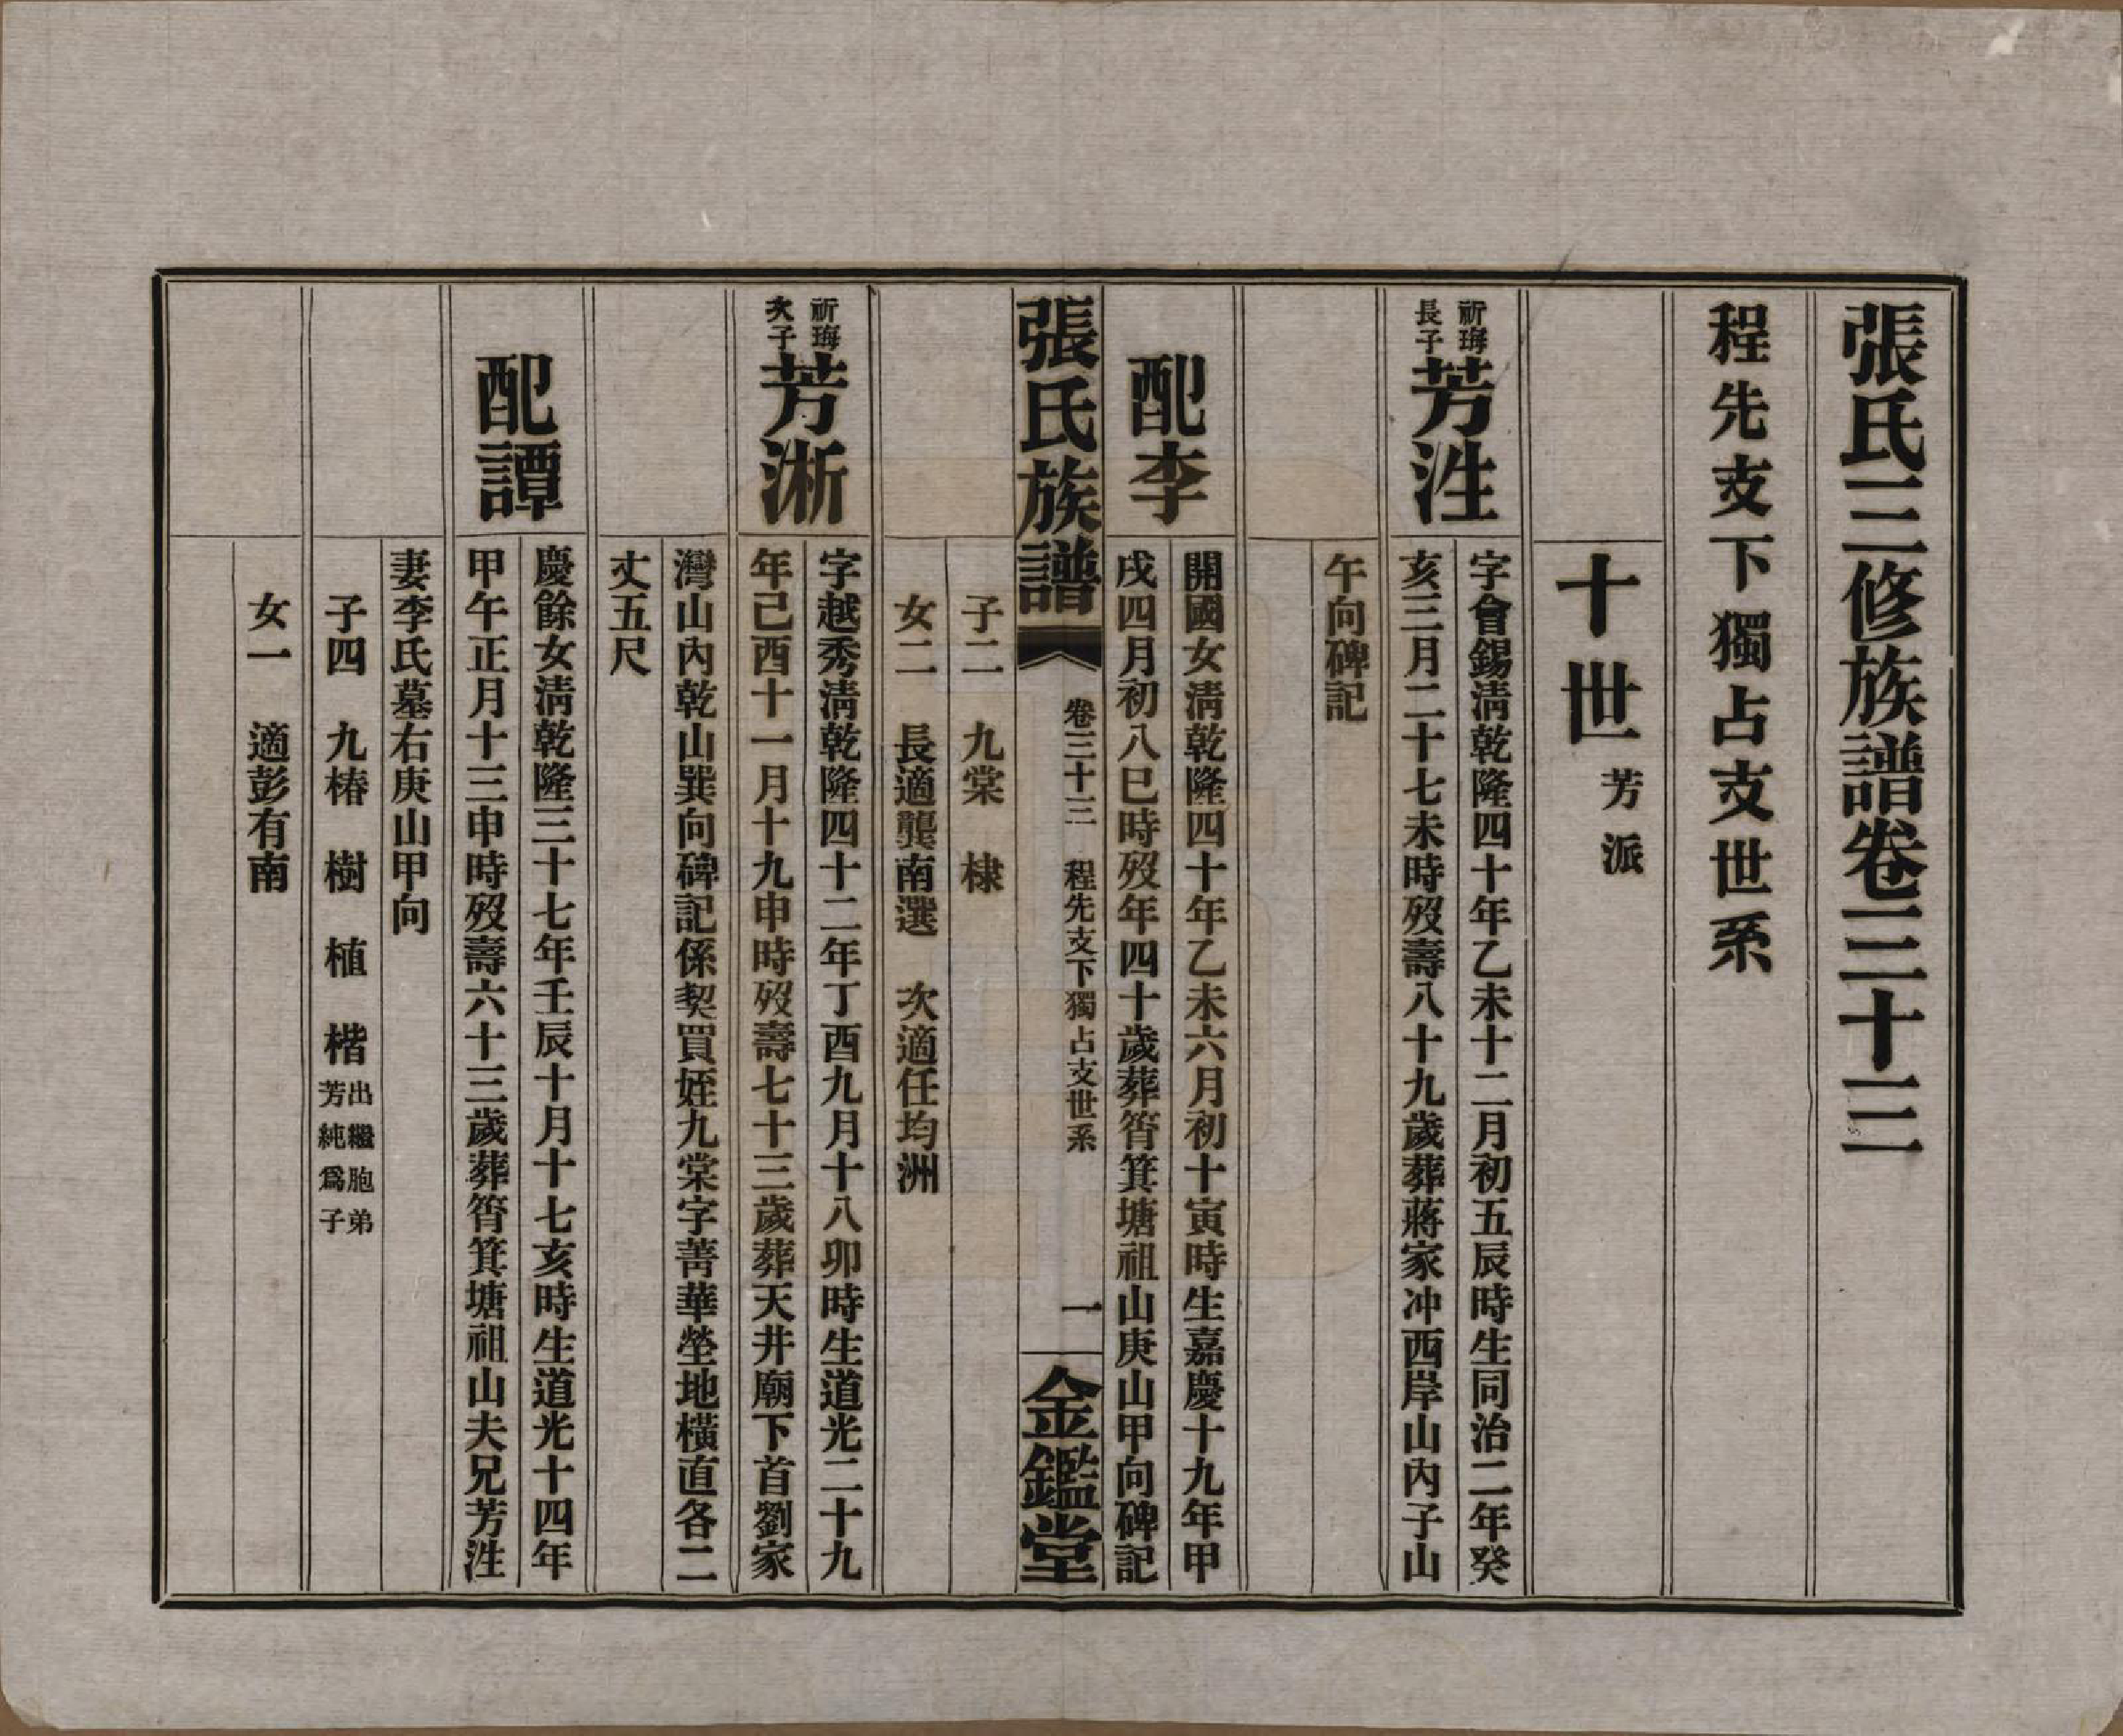 張氏三修族譜卷三十三
程先支下獨占支世系
十世芳派
祈珻長子
芳泩
字會錫淸乾隆四十年乙未十二月初五辰時生同治二年癸
亥三月二十七未時歿壽八十九歲葬蔣家冲西岸山內子山
午向碑記
配李
開國女淸乾隆四十年乙未六月初十寅時生嘉慶十九年甲
戌四月初八巳時歿年四十歲葬筲箕塘祖山庚山甲向碑記
張氏族譜
卷三十三 程先支下獨占支世系
一
金鑑堂
子二 九棠 棣
女二 長適龔南選 次適任均洲
祈珻次子
芳淅
字越秀淸乾隆四十二年丁酉九月十八卯時生道光二十九
年己酉十一月十九申時歿壽七十三歲葬天井廟下首劉家
灣山內乾山巽向碑記係契買姪九棠字菁華塋地橫直各二
丈五尺
配譚
慶餘女淸乾隆三十七年壬辰十月十七亥時生道光十四年
甲午正月十三申時歿壽六十三歲葬筲箕塘祖山夫兄芳泩
妻李氏墓右庚山甲向
子四 九椿 樹 植 楷出繼胞弟芳純爲子
女一 適彭有南